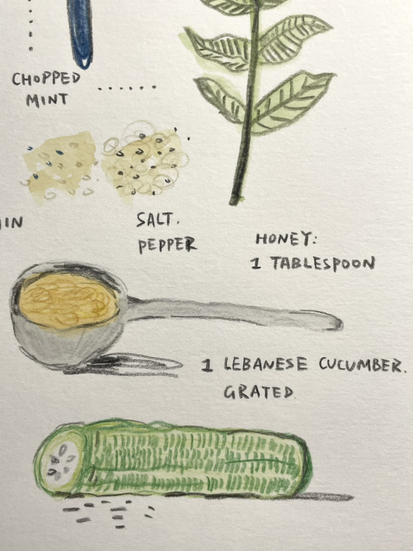 CHOPPED
MINT
IN
SALT.
PEPPER
HONEY:
1 TABLESPOON
1 LEBANESE CUCUMBER.
GRATED.